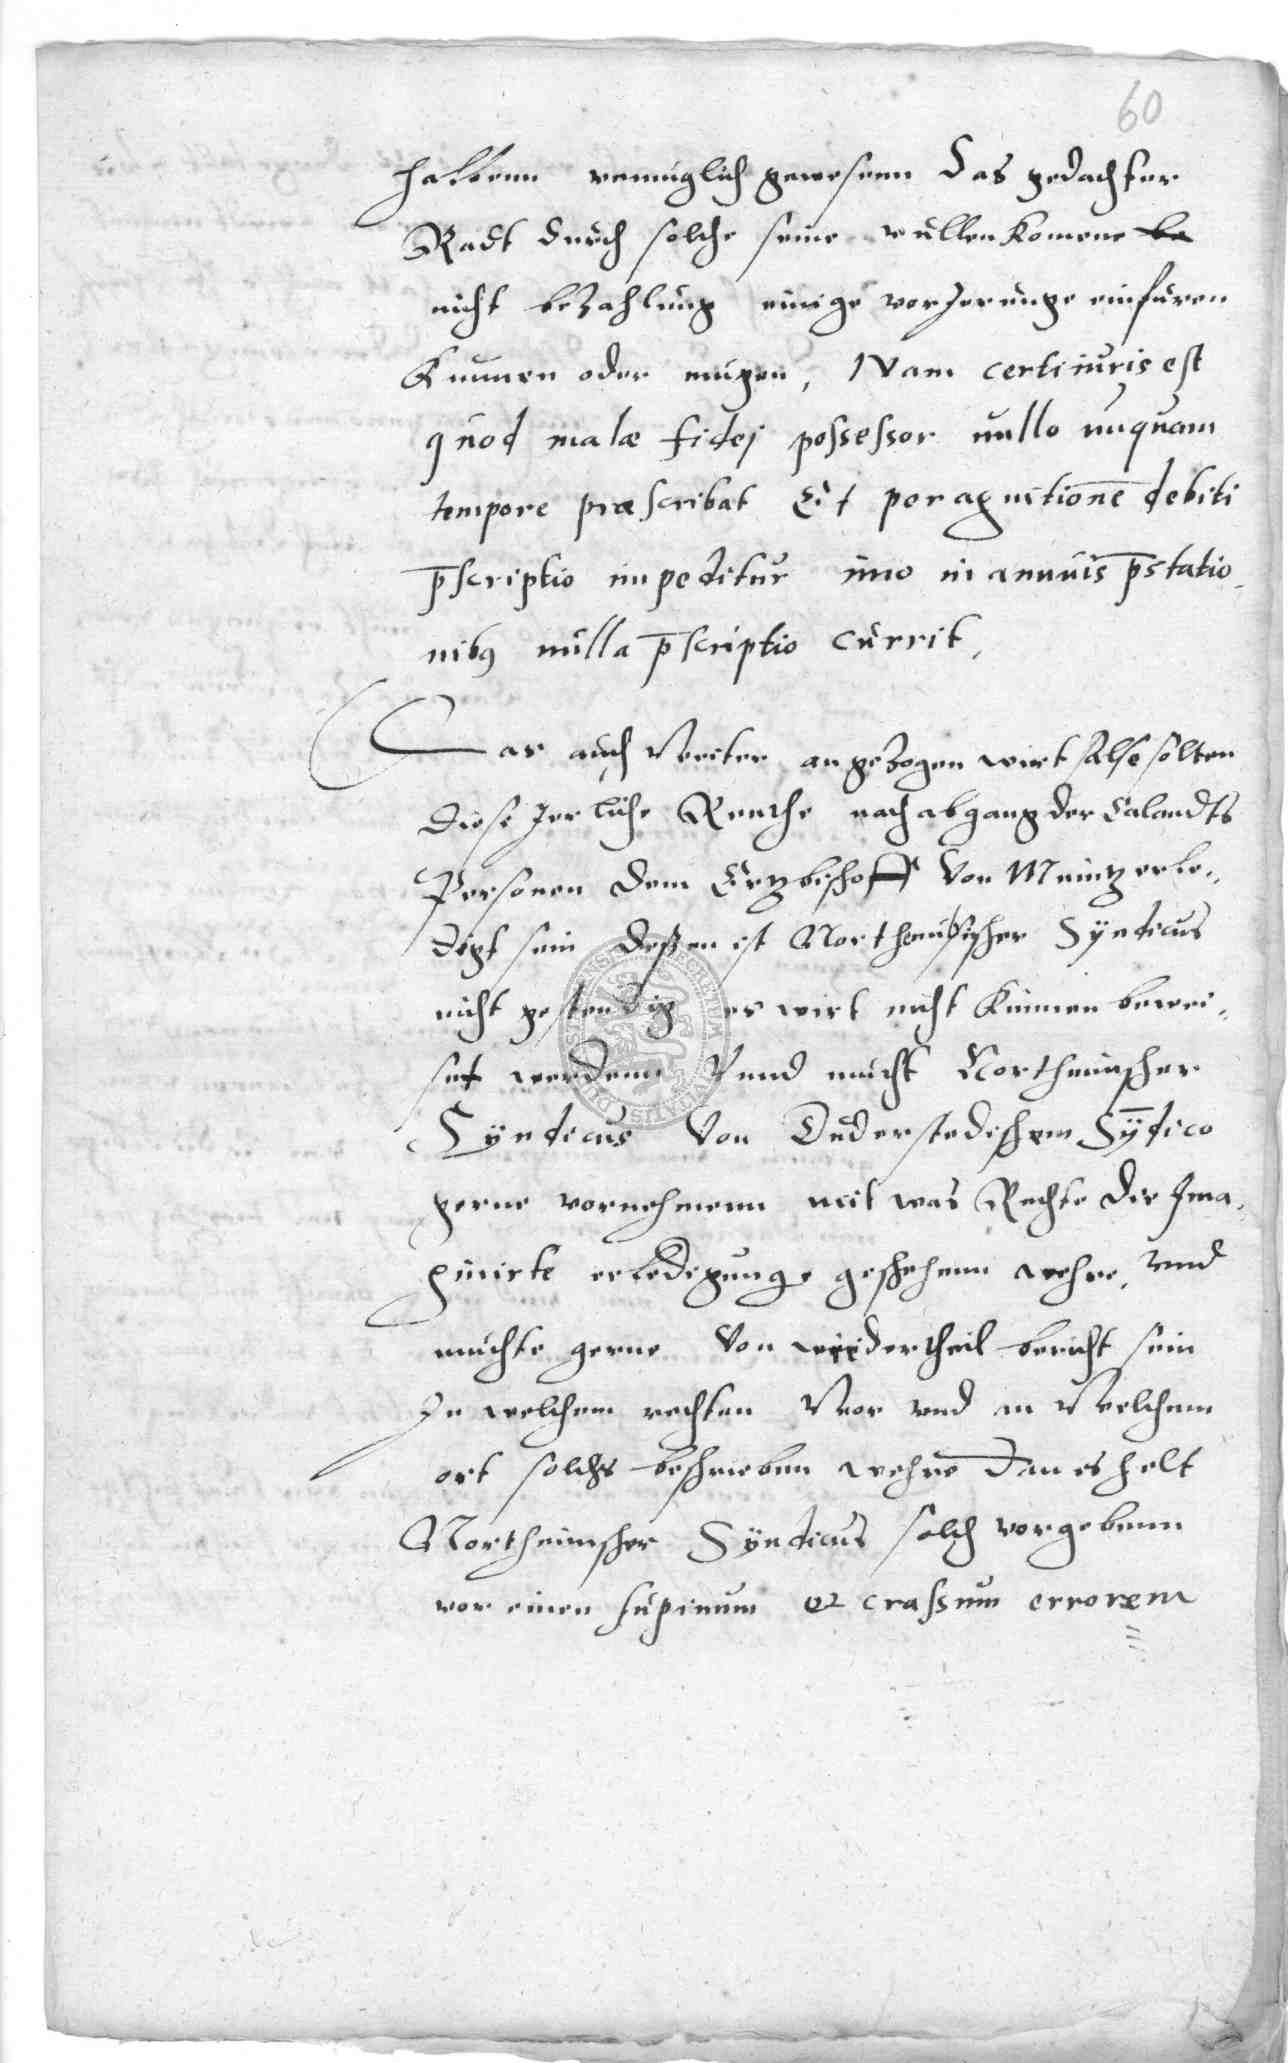 60
halbenn vnmuglich gewesenn Das gedachter
Radt durch solche seine vullenkomene be
nicht bezahlung einige vorJerunge einfuren
Kunnen oder mugen, Nam certi iuris est
quod malæ fidej possessor nullo unquam
tempore præscribat Et per agnitionē debiti
p̄scriptio impeditur imo in annuis p̄statio-
nibꝫ nulla p̄scriptio currit,
Das auch Weiter angezogen wirt Alse solten
diese Jerliche Renthe nach abgang der Calandts
Personen dem Ertzbischoff Von Meintz erle-
digt sein deßen ist Northeimischer Sÿndicus
nicht gestendig es wirt nicht Kunnen bewei-
set werdenn Vnnd mucht Northeimscher
Sÿndicus Von Duderstedischem Sÿ̄dico
gerne vornehmenn mit was Rechte die Ima-
ginirte erledigunge geschehenn wehre, Vnnd
muchte gerne Von wiedertheil bericht sein
In welchem rechten Vnd an Welchem
ort solchs beschriebenn wehre Dan es helt
Northeimscher Sÿndicus solch vorgebenn
vor einen supinum et crassum errorem